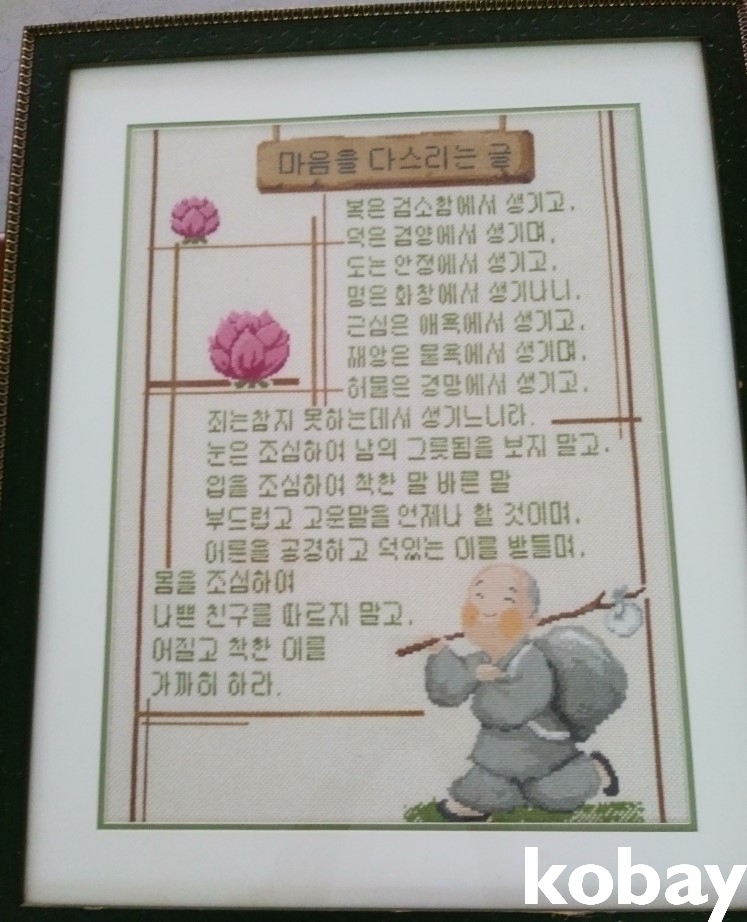 마음을 다스리는 글
복은 검소함에서 생기고,
덕은 겸양에서 생기며,
도는 안정에서 생기고,
명은 화창에서 생기나니,
근심은 애욕에서 생기고,
재앙은 물욕에서 생기며,
허물은 경망에서 생기고,
죄는참지 못하는데서 생기느니라.
눈은 조심하여 남의 그릇됨을 보지 말고,
입을 조심하여 착한 말 바른 말
부드럽고 고운말을 언제나 할 것이며,
어른을 공경하고 덕있는 이를 받들며,
몸을 조심하여
나쁜 친구를 따르지 말고,
어질고 착한 이를
가까히 하라.
kobay